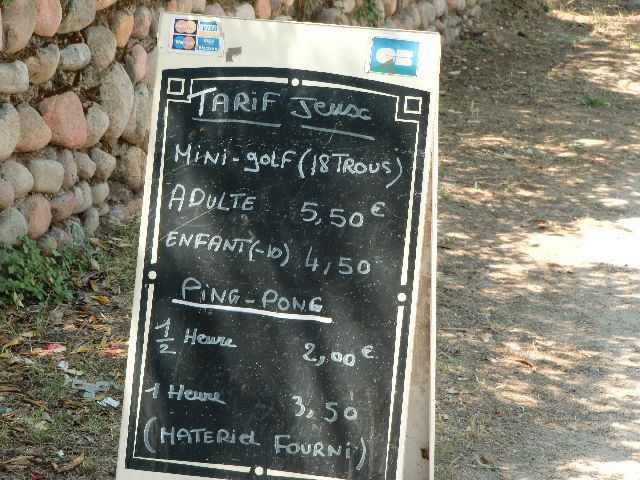 VISA
VISA
Electron
CB
TARIF Jeux
MINI-golf (18 TROUS)
ADULTE 5,50 €
ENFANT (-10) 4,50
PING-PONG
1/2 Heure 2,00 €
1 Heure 3,50
(MATERIEL FOURNI)